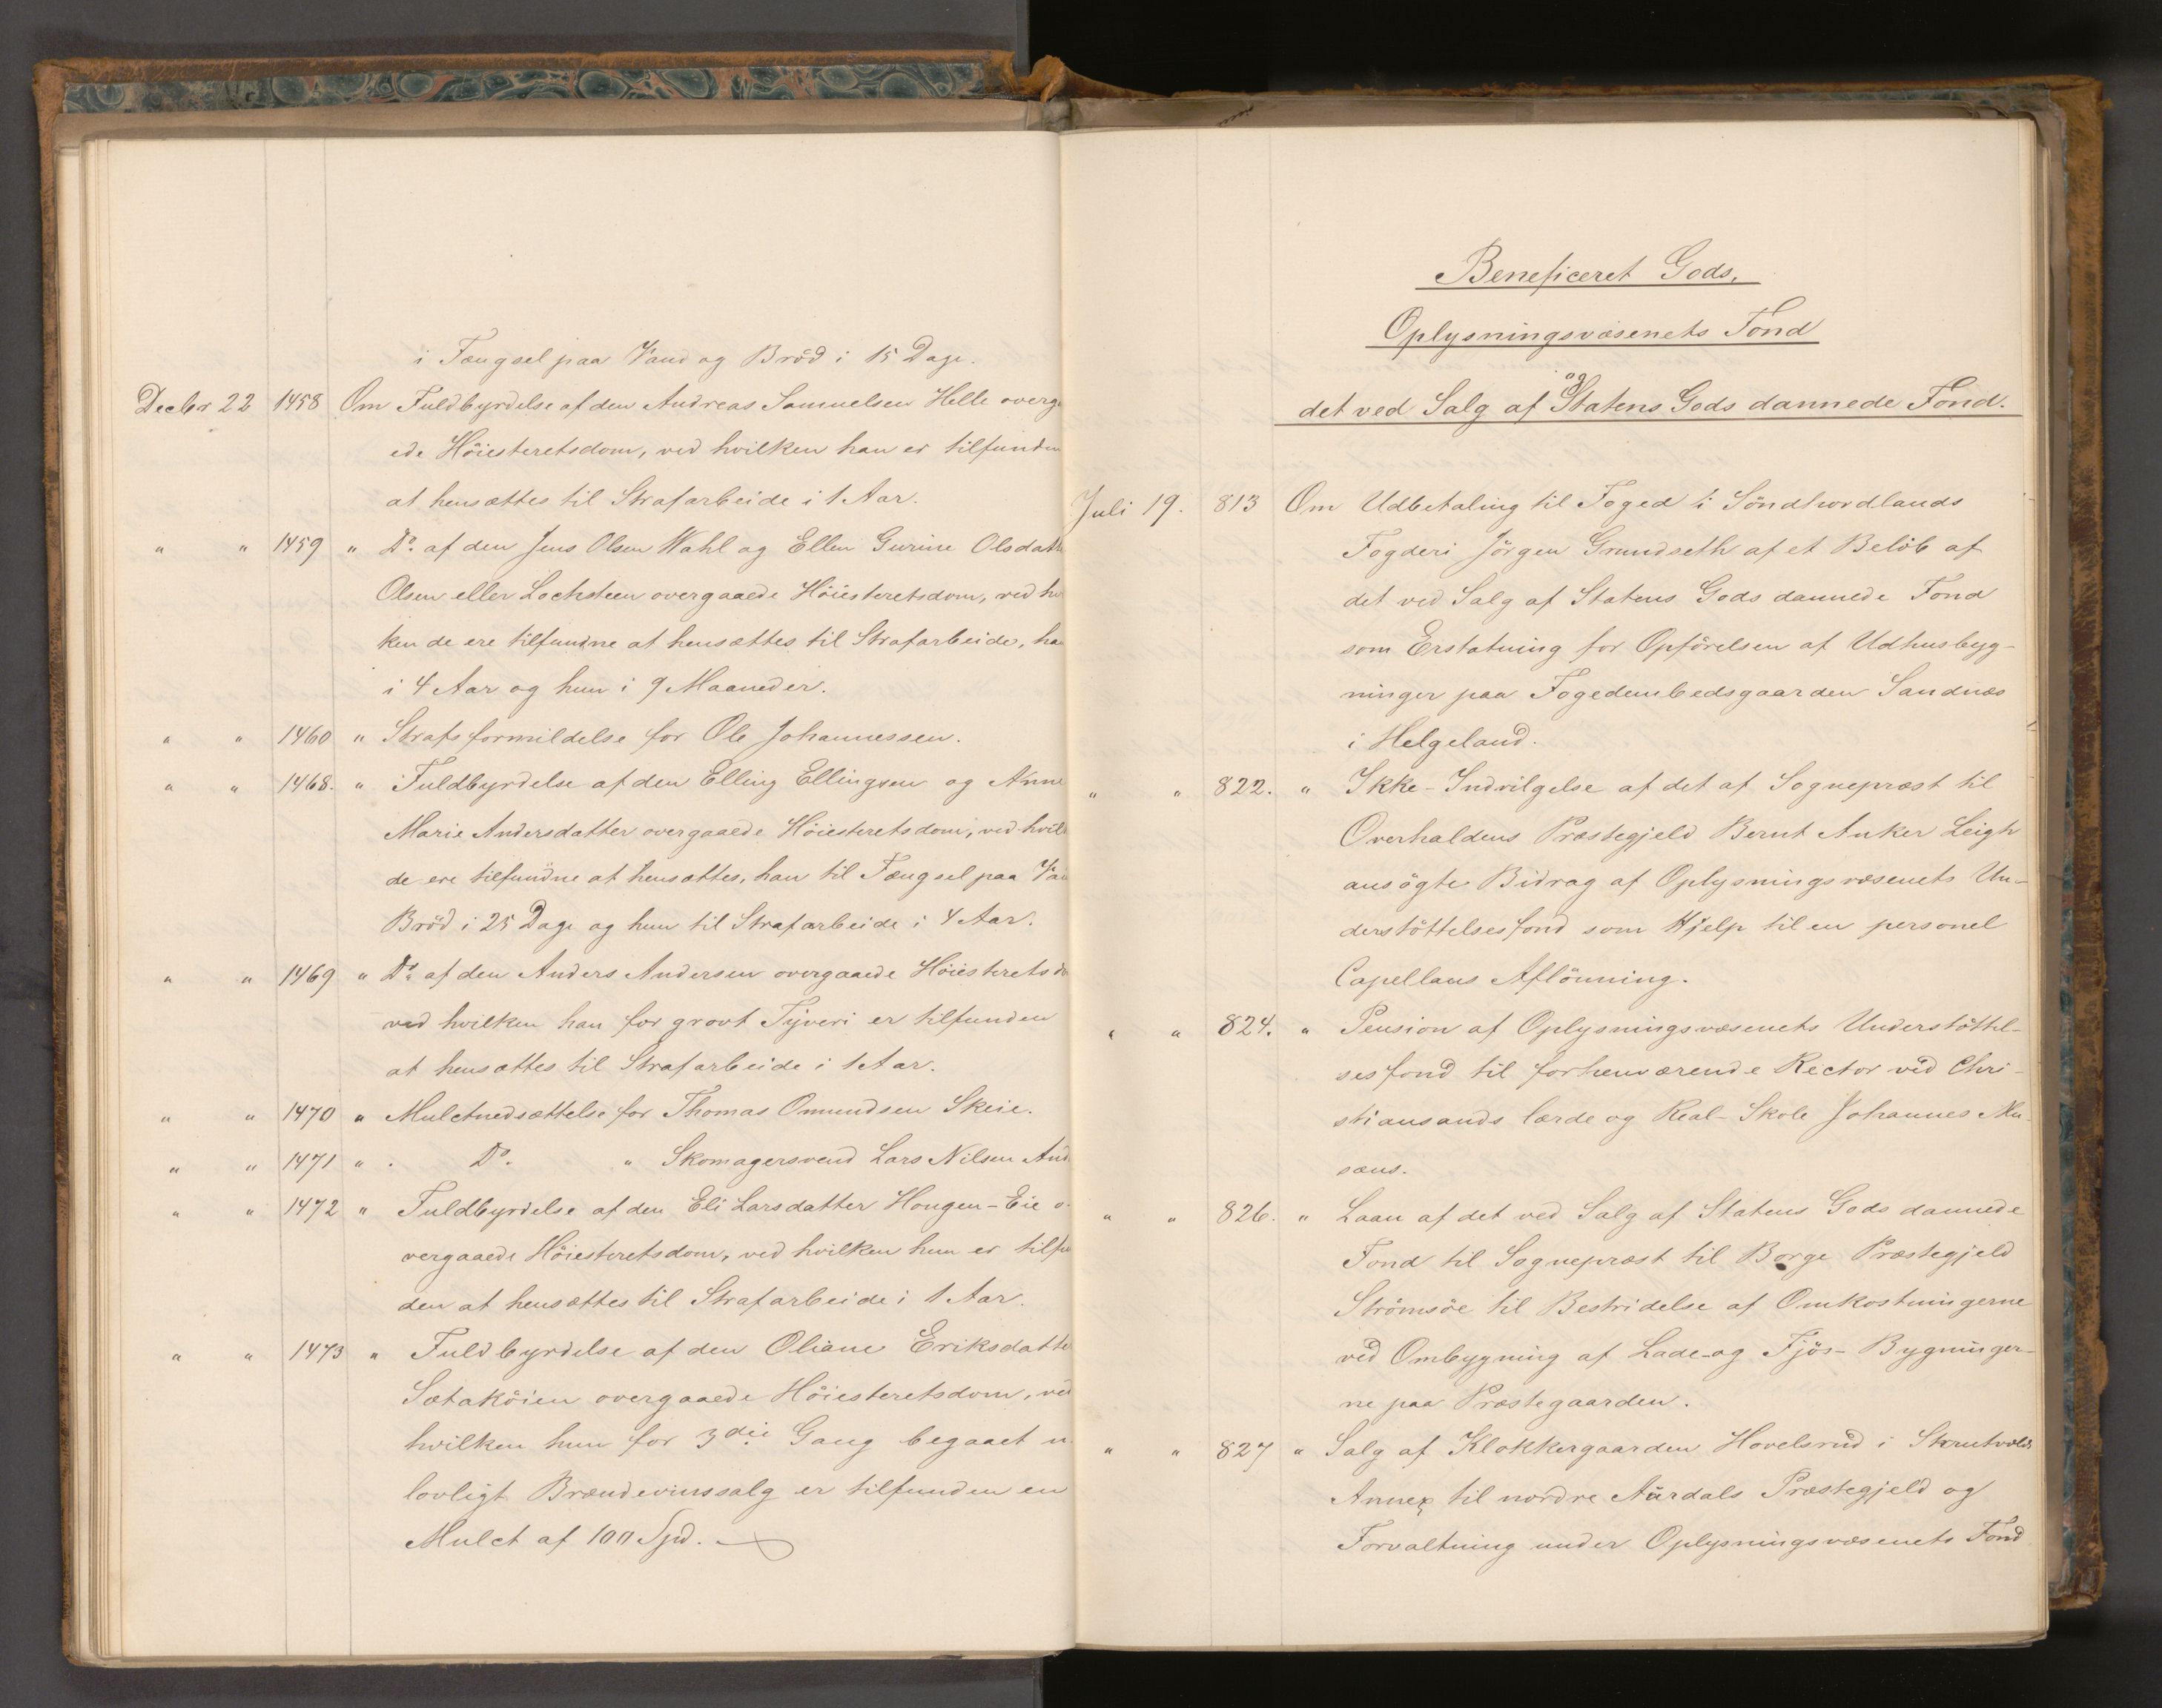 i Fængsel paa Vand og Bröd i 15 Dage.
Decbr 22 1458 Om Fuldbyrdelse af den Andreas Samuelsen Helle overga
ede Höiesteretsdom, ved hvilken han er tilfunden
at hensættes til Strafarbeide i 1 Aar.
" " 1459 " Do. af den Jens Olsen Wahl og Ellen Gurine Olsdatte
Olsen eller Lochsteen overgaaede Höiesteretsdom, ved hv
ken de ere tilfundne at hensættes til Strafarbeide, ha
i 4 Aar og hun i 9 Maaneder.
" " 1460 " Strafsformildelse for Ole Johannessen.
" " 1468. " Fuldbyrdelse af den Elling Ellingsen og Anne
Marie Andersdatter overgaaede Höiesteretsdom, ved hvilk
de ere tilfundne at hensættes, han til Fængsel paa Va
Bröd i 25 Dage og hun til Strafarbeide i 4 Aar.
" " 1469 " Do. af den Anders Andersen overgaaede Höiesteretsdo
ved hvilken han for grovt Tyveri er tilfunden
at hensættes til Strafarbeide i 1 Aar.
" " 1470 " Mulctnedsættelse for Thomas Omundsen Skeie.
" " 1471 " . Do. " Skomagersvend Lars Nilsen And
" " 1472 " Fuldbyrdelse af den Eli Larsdatter Hougen-Eie o-
vergaaede Höiesteretsdom, ved hvilken hun er tilfu
den at hensættes til Strafarbeide i 1 Aar.
" " 1473 " Fuldbyrdelse af den Oliane Eriksdatte
Sætaköien overgaaede Höiesteretsdom, ved
hvilken hun for 3die Gang begaaet u
lovligt Brændevinssalg er tilfunden en
Mulct af 100 Spd.
Beneficeret Gods,
Oplysningsvæsenets Fond
og
det ved Salg af Statens Gods dannede Fond.
Juli 19. 813 Om Udbetaling til Foged i Söndhordlands
Fogderi Jörgen Grundseth af et Belöb af
det ved Salg af Statens Gods dannede Fond
som Erstatning for Opförelsen af Udhusbyg-
ninger paa Fogedembedsgaarden Sandnæs
i Helgeland.
" " 822. " Ikke-Indvilgelse af det af Sognepræst til
Overhaldens Præstegjeld Bernt Anker Leigh
ansögte Bidrag af Oplysningsvæsenets Un-
derstöttelsesfond som Hjelp til en personel
Capellans Aflönning.
" " 824. " Pension af Oplysningsvæsenets Understöttel-
sesfond til forhenværende Rector ved Chri-
stiansands lærde og Real-Skole Johannes Mu-
sæus.
" " 826. " Laan af det ved Salg af Statens Gods dannede
Fond til Sognepræst til Borge Præstegjeld
Strömsöe til Bestridelse af Omkostningerne
ved Ombygning af Lade- og Fjös-Bygninger-
ne paa Præstegaarden.
" " 827 " Salg af Klokkergaarden Hovelsrud i Skrutvolds
Annex til nordre Aurdals Præstegjeld og
Forvaltning under Oplysningsvæsenets Fond